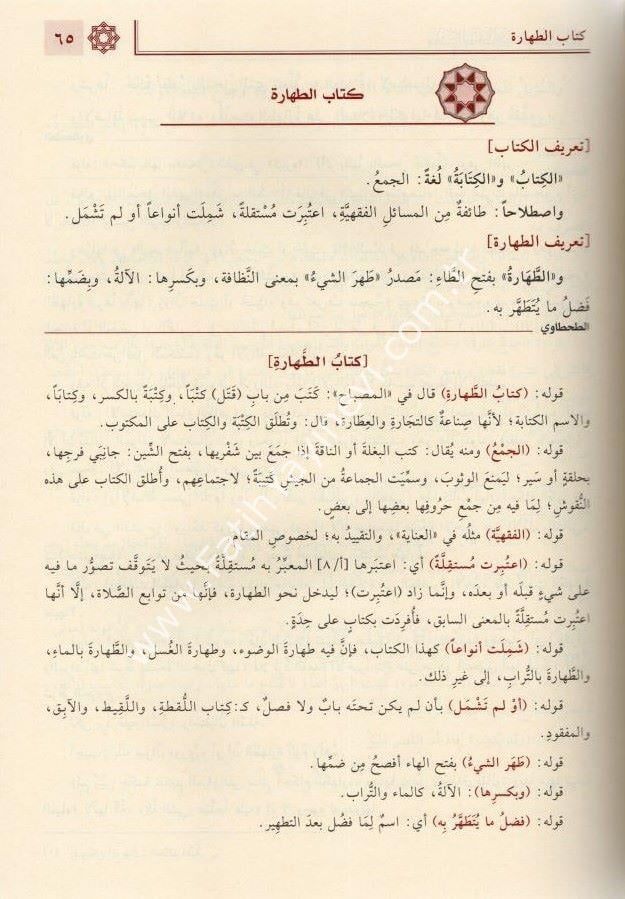 كتاب الطهارة
٦٥
كتاب الطهارة
[تعريف الكتاب]
«الكِتابُ» و«الكِتَابَةُ» لُغةً: الجمعُ.
واصطلاحاً: طائفةٌ مِن المسائلِ الفقهيَّةِ، اعتُبِرَت مُسْتقلةً، شَمِلَت أنواعاً أو لم تَشْمَل.
[تعريف الطهارة]
و«الطَّهَارَةُ» بفتح الطَّاءِ: مَصدرُ «طَهرَ الشيءُ» بمعنى النَّظافة، وبكَسرِها: الآلةُ، وبِضَمِّها:
فَضلُ ما يُتَطَهَّر به.
الطحطاوي
[كتابُ الطَّهارةِ]
قوله: (كتابُ الطَّهارةِ) قال في «المصباح»: كَتَبَ مِن بابِ (قَتَل) كَتْباً، وكِتْبَةً بالكسر، وكِتاباً،
والاسم الكتابة؛ لأنَّها صِناعةٌ كالتجَارةِ والعِطارة، قال: وتُطلَق الكِتْبَة والكِتاب على المكتوب.
قوله: (الجمْعُ) ومنه يُقال: كتب البغلةَ أو الناقةَ إذا جمَعَ بين شَفْريها، بفتح الشِّين: جانِبَي فرجِها،
بحلقةٍ أو سَير؛ ليَمنعَ الوثوبَ، وسمِّيَت الجماعةُ من الجيشِ كَتِيبَةً؛ لاجتماعِهم، وأُطلق الكتاب على هذه
النُّقوشِ؛ لِمَا فيه مِن جمْعِ حرُوفِها بعضِها إلى بعضٍ.
قوله: (الفقهيَّة) مثلُه في «العناية»، والتقييد به؛ لخصوصِ المقام.
قوله: (اعتُبِرت مُستقِلَّةً) أي: اعتبَرها [أ/٨] المعبِّرُ به مُستقِلَّةً بحيثُ لا يَتوقَّف تصوُّر ما فيه
على شيءٍ قبلَه أو بعدَه، وإنَّما زاد (اعتُبِرت)؛ ليدخل نحو الطهارة، فإنَّها مِن توابعِ الصَّلاة، إلَّا أنَّها
اعتبرت مُستقِلَّةً بالمعنى السابق، فأُفرِدَت بكتابٍ على حِدَةٍ.
قوله: (شَمِلَت أنواعاً) كهذا الكتاب، فإنَّ فيه طهارةَ الوضوء، وطهارةَ الغُسل، والطَّهارةَ بالماءِ،
والطَّهارةَ بالتُّراب، إلى غيرِ ذلك.
قوله: (أوْ لم تَشْمَل) بأن لم يكن تحتَه بابٌ ولا فصلٌ، كـ: كِتاب اللُّقَطةِ، واللَّقِيط، والآبِق،
والمفقودِ.
قوله: (طَهَر الشيءُ) بفتح الهاء أفصحُ مِن ضمِّها.
قوله: (وبكسرِها): الآلةُ، كالماء والتُّراب.
قوله: (فضلُ ما يُتَطَهَّرُ بِه) أي: اسمٌ لِمَا فضُل بعدَ التطهير.